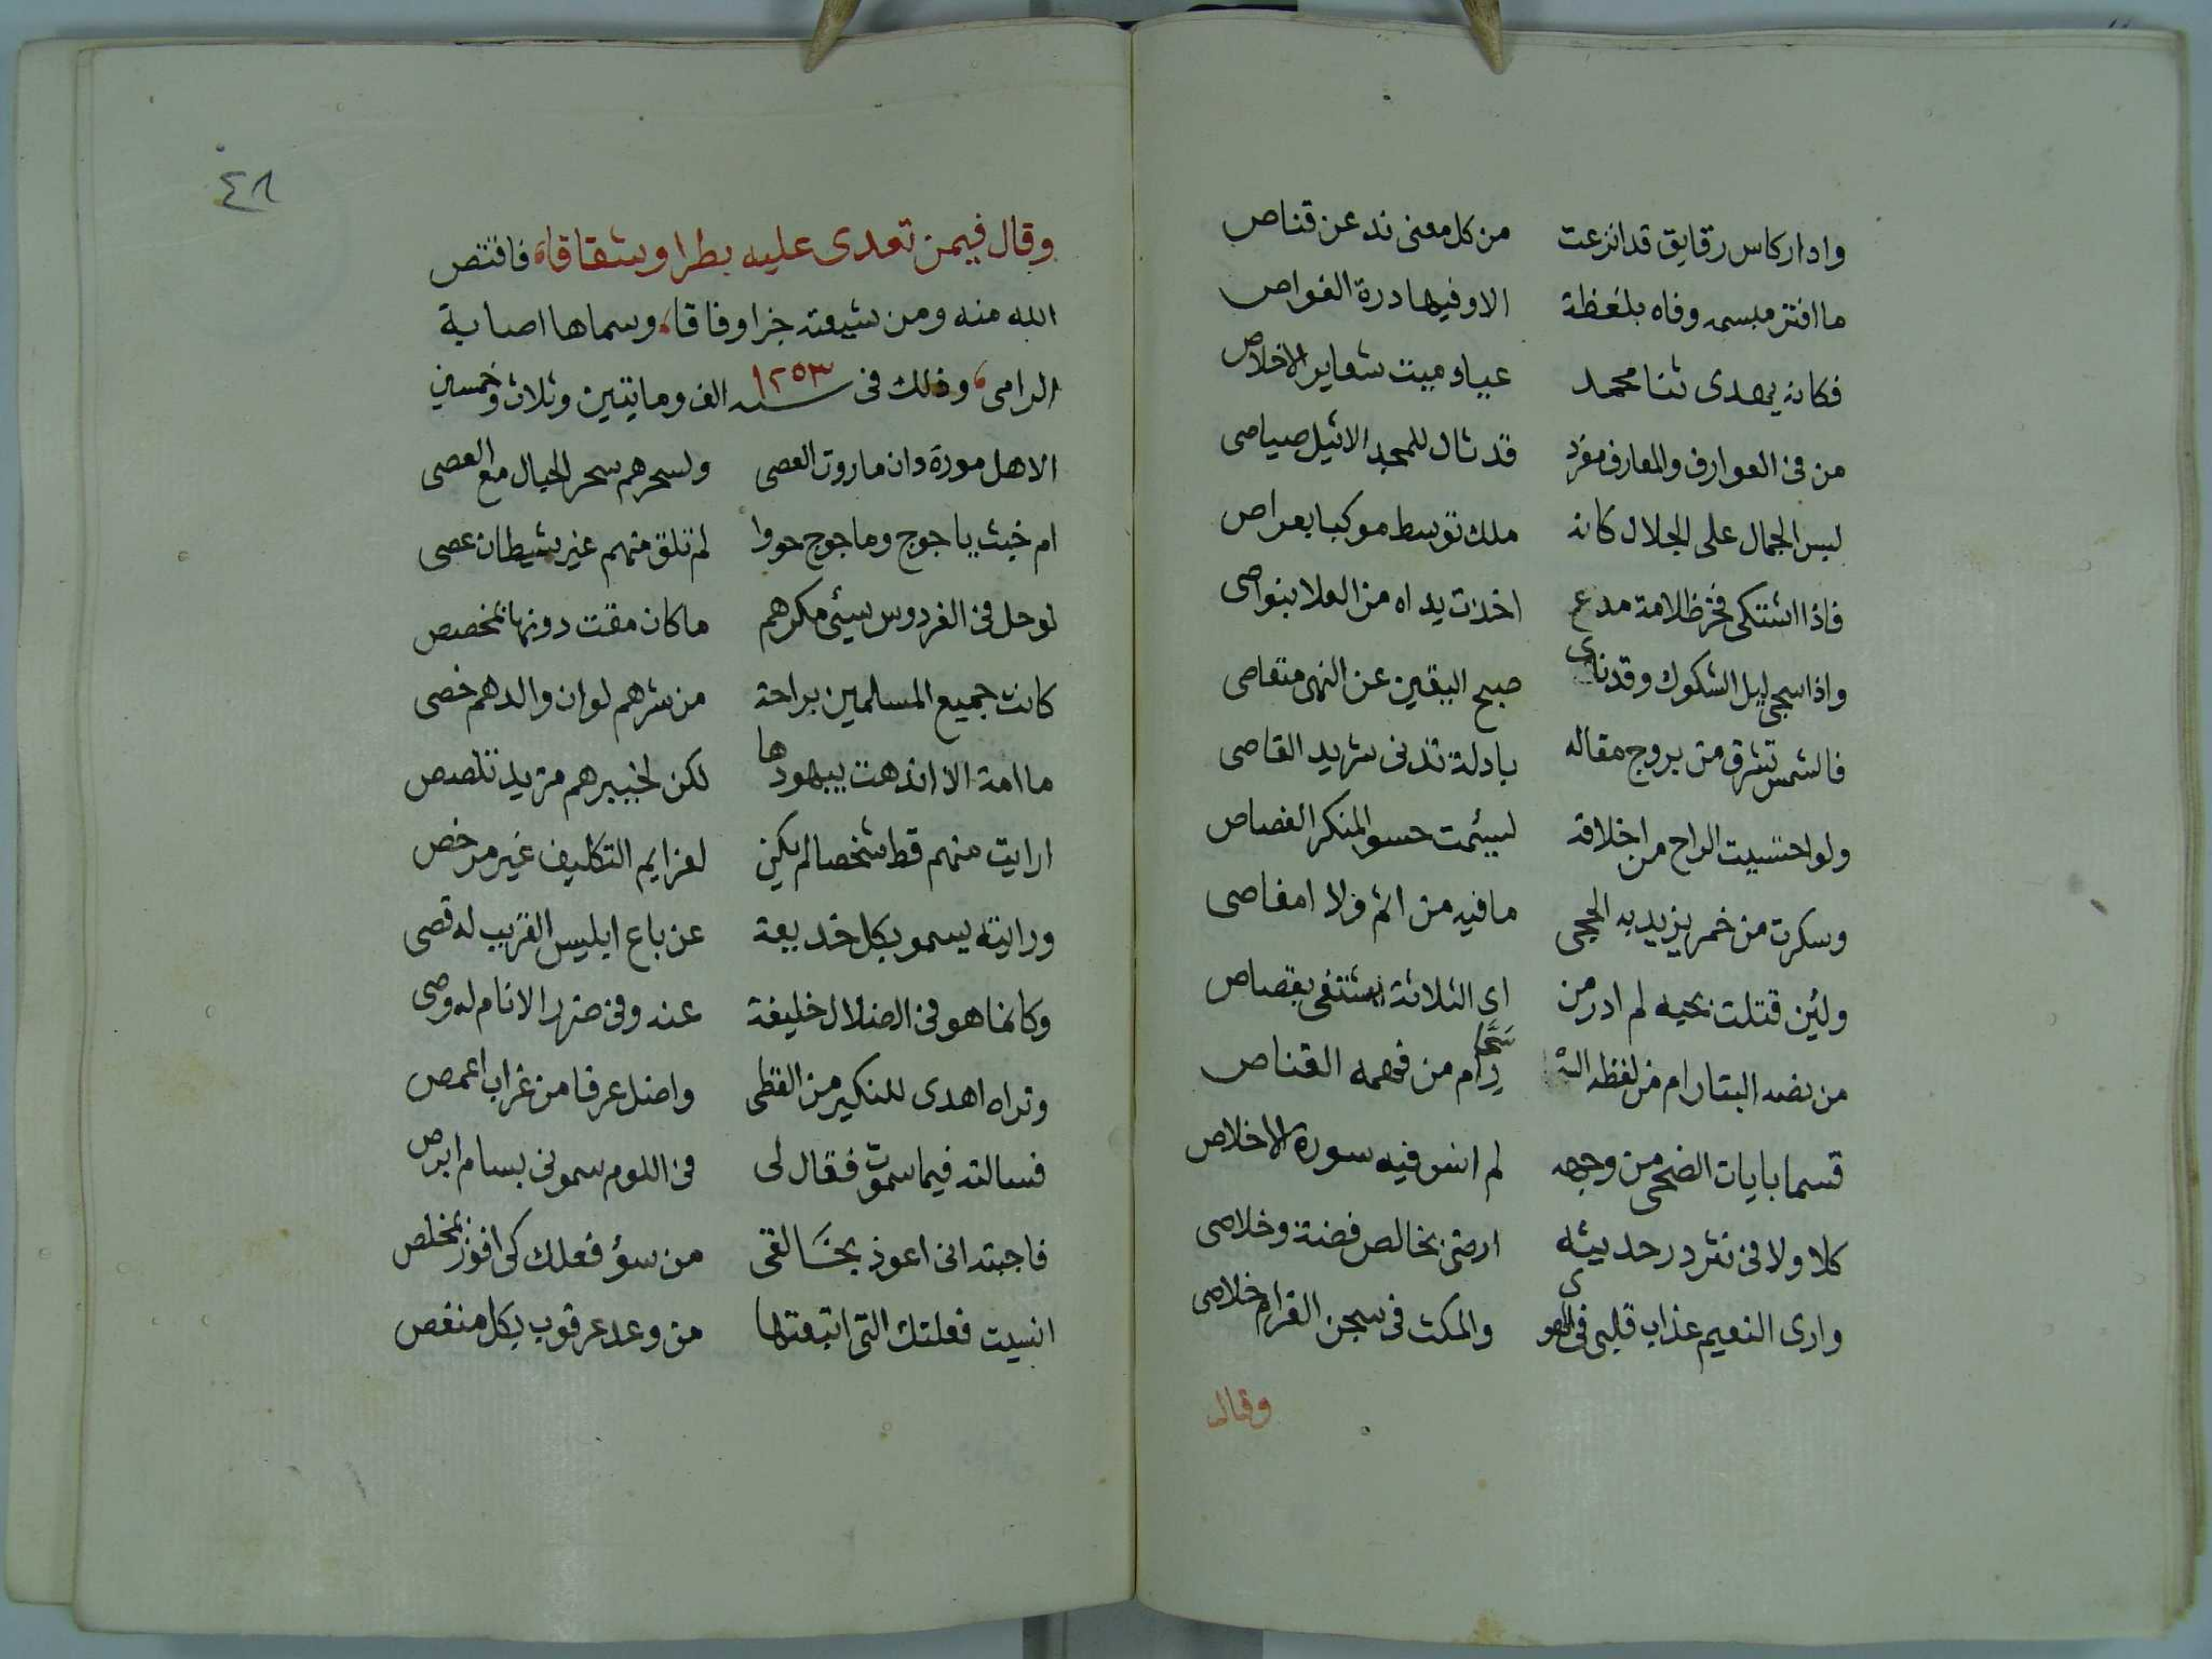 وادار كاس رقايق قد اترعت من كل معنى ند عن قناص
ما افتر مبسمه وفاه بلفظة الا وفيها درة الغواص
فكانه يهدى ثنا محمد عياد ميت شعاير الاخلاص
من فى العوارف والمعارف مفرد قد شال للمجد الاثيل صياصى
لبس الجمال على الجلال كانه ملك توسط موكبا بعراص
فاذا اشتكى فخر ظلامة مدع اخذت يداه من العلا بنواصى
واذا سجى ليل الشكوك وقد ناى صبح اليقين عن النهى متقاصى
فالشمس تشرق من بروج مقاله بادلة تدنى شريد القاصى
ولو احتسيت الراح من اخلاقه لسيمت حسو المنكر الغصاص
وسكرت من خمر يزيد به الحجى ما فيه من اثم ولا امغاصى
ولئن قتلت بحيه لم ادر من اى الثلاثة يشتفى بقصاص
من نضه البتار ام من لفظه السحار ام من فهمه القناص
قسما بايات الضحى من وجهه لم انس فيه سورة الاخلاص
كلا ولا فى نثر در حديثه ارضى بخالص فضة وخلاصى
وارى النعيم عذاب قلبى فى الهوى والمكث فى سجن الغرام خلاصى
وقال
٤٨
وقال فيمن تعدى عليه بطرا وشقاقاه فاقتص
الله منه ومن شيعته جزا وفاقا، وسماها اصابة
الرامى، وذلك فى سنه ١٢٥٣ الف ومايتين وثلاث وخمسين
الا هل مورة دان ماروت العصى ولسحرهم سحر الحبال مع العصى
ام خبث ياجوج وماجوج حووا لم تلق منهم غير شيطان عصى
لو حل فى الفردوس سيئى مكرهم ما كان مقت دونها بمخصص
كانت جميع المسلمين براحة من شرهم لو ان والدهم خصى
ما امة الا اندهت بيهودها لكن لخيبرهم مزيد تلصص
ارايت منهم قط شخصا لم يكن لعزايم التكليف غير مرخص
ورايته يسمو بكل خديعة عن باع ابليس القريب له قصى
وكانما هو فى الضلال خليفة عنه وفى ضرر الانام له وصى
وتراه اهدى للنكير من القطى واضل عرفا من غراب اعمص
فسالته فيما سموت فقال لى فى اللوم سمونى بسام ابرص
فاجبته انى اعوذ بخالقى من سؤ فعلك كى افوز بمخلص
انسيت فعلتك التى اتبعتها من وعد عرقوب بكل منغص